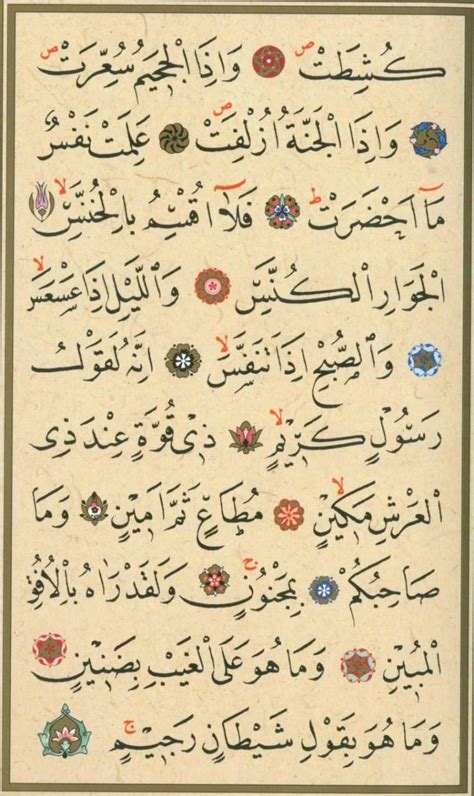 كُشِطَتْ ۝ وَاِذَا الْجَحِيمُ سُعِّرَتْ
۝ وَاِذَا الْجَنَّةُ اُزْلِفَتْ ۝ عَلِمَتْ نَفْسٌ
مَآ اَحْضَرَتْ ۝ فَلَآ اُقْسِمُ بِالْخُنَّسِ ۝
الْجَوَارِ الْكُنَّسِ ۝ وَالَّيْلِ اِذَا عَسْعَسَ
۝ وَالصُّبْحِ اِذَا تَنَفَّسَ ۝ اِنَّهُ لَقَوْلُ
رَسُولٍ كَرِيمٍ ۝ ذِي قُوَّةٍ عِنْدَ ذِي
الْعَرْشِ مَكِينٍ ۝ مُطَاعٍ ثَمَّ اَمِينٍ ۝ وَمَا
صَاحِبُكُمْ ۝ بِمَجْنُونٍ ۝ وَلَقَدْ رَاٰهُ بِالْاُفُقِ
الْمُبِينِ ۝ وَمَا هُوَ عَلَى الْغَيْبِ بِضَنِينٍ ۝
وَمَا هُوَ بِقَوْلِ شَيْطَانٍ رَجِيمٍ ۝